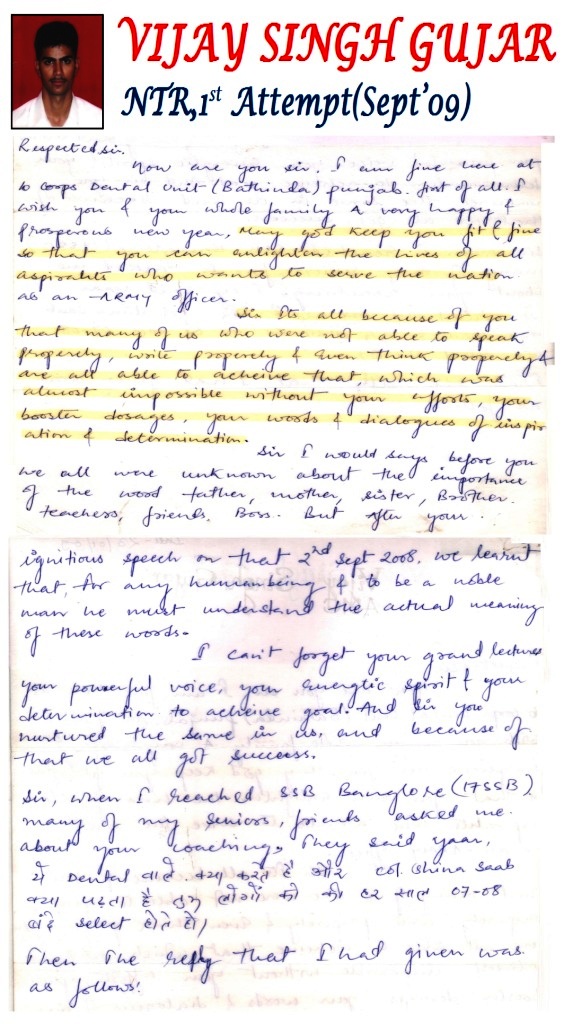 VIJAY SINGH GUJAR
NTR,1st Attempt(Sept'09)
Respected sir.
How are you sir. I am fine here at
10 corps Dental Unit (Bathinda) punjab. first of all. I
wish you & your whole family A very happy &
prosperous new year, May god keep you fit & fine
so that you can enlighten the lives of all
aspirants who wants to serve the nation
as an ARMY officer.
Sir Its all because of you
that many of us who were not able to speak
properely, write properely & Even think properely &
are all able to acheive that, which was
almost impossible without your efforts, your
booster dosages, your words & dialogues of inspir
ation & determination.
Sir I would says before you
we all were unknown about the importance
of the word father, mother, sister, Brother.
teachers, friends, Boss. But After your
ignitious speech on that 2nd Sept 2008, we learnt
that, for any humanbeing & to be a noble
man he must understand the actual meaning
of these words.
I can't forget your grand lectures
your powerful voice, your energtic spirit & your
determination to acheive goal. And sir you
nurtured the same in us, and because of
that we all got success.
Sir, when I reached SSB Banglore (17SSB)
many of my seniors, friends asked me
about your coaching. They said yaar,
ये Dental वाले क्या करते हैं और col. China Saab
क्या पढ़ता है तुम लोगों को की हर साल 07-08
बंदे select होते हो/
Then The reply that I had given was
as follows: